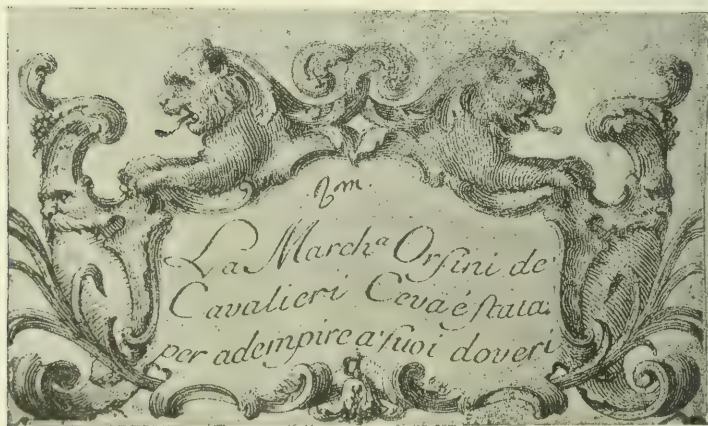 La March.ª Orſini de'
Cavalieri Ceva é ſtata
per adempire a' ſuoi doveri